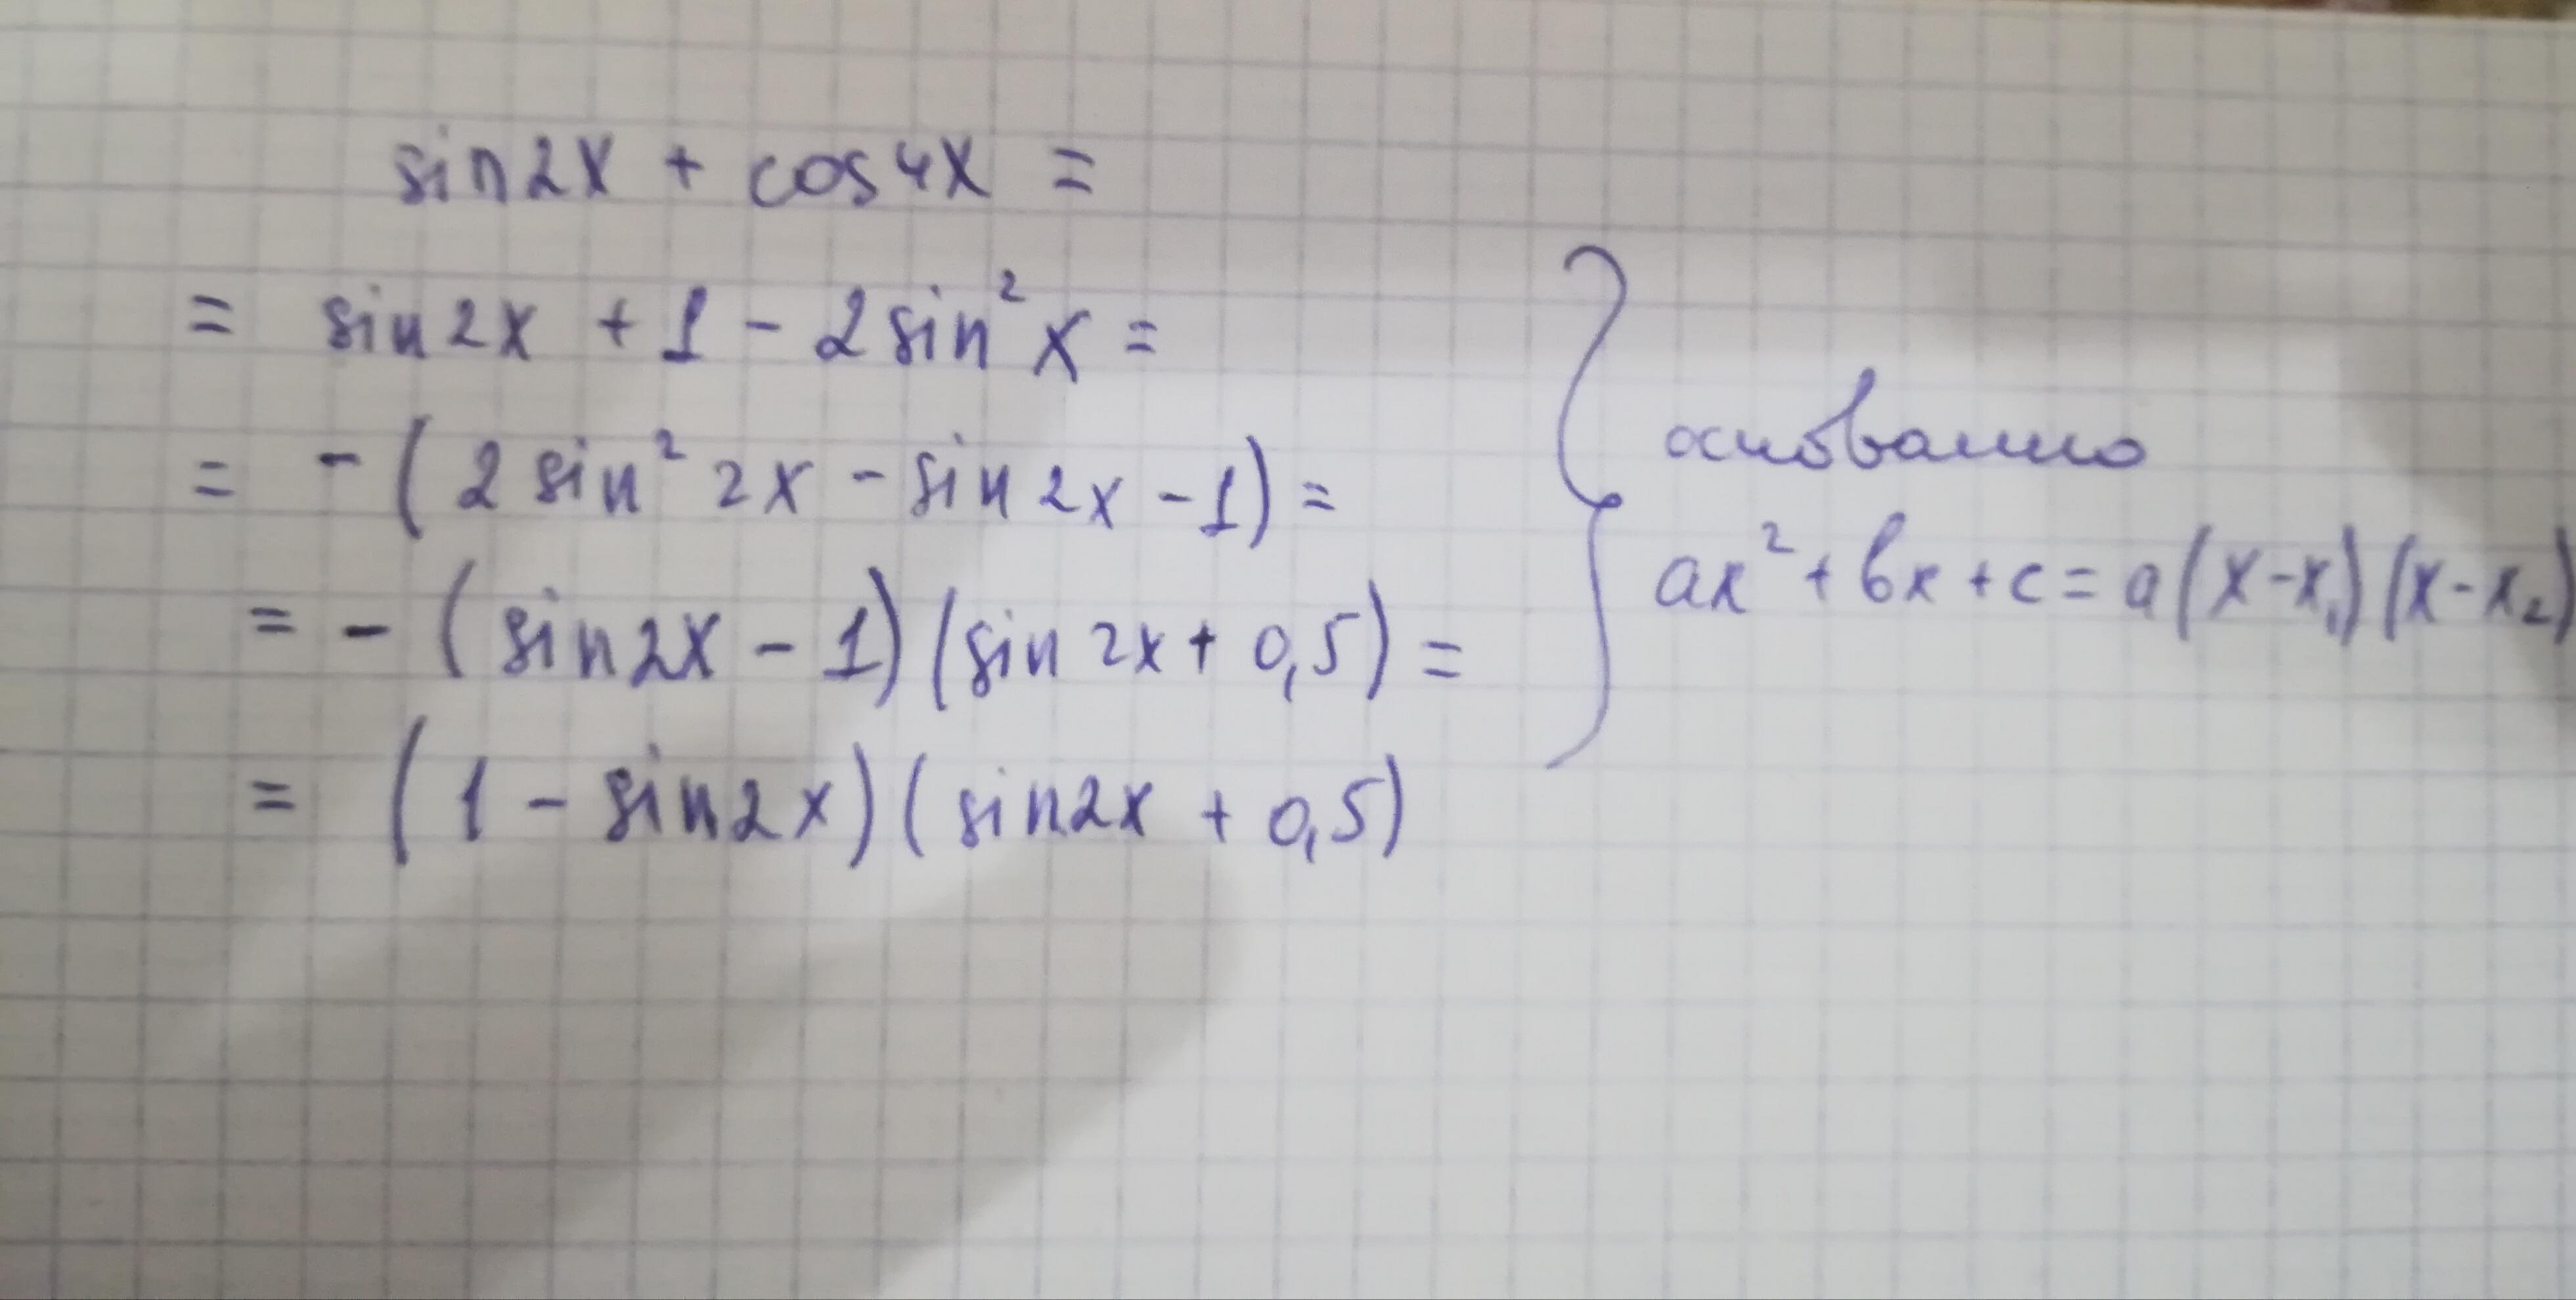 sin2x + cos4x =
= sin2x + 1 - 2sin²x =
= -(2sin²2x - sin2x - 1) =
= -(sin2x - 1)(sin2x + 0,5) =
= (1 - sin2x)(sin2x + 0,5)
основанно
ax² + bx + c = a(x-x₁)(x-x₂)